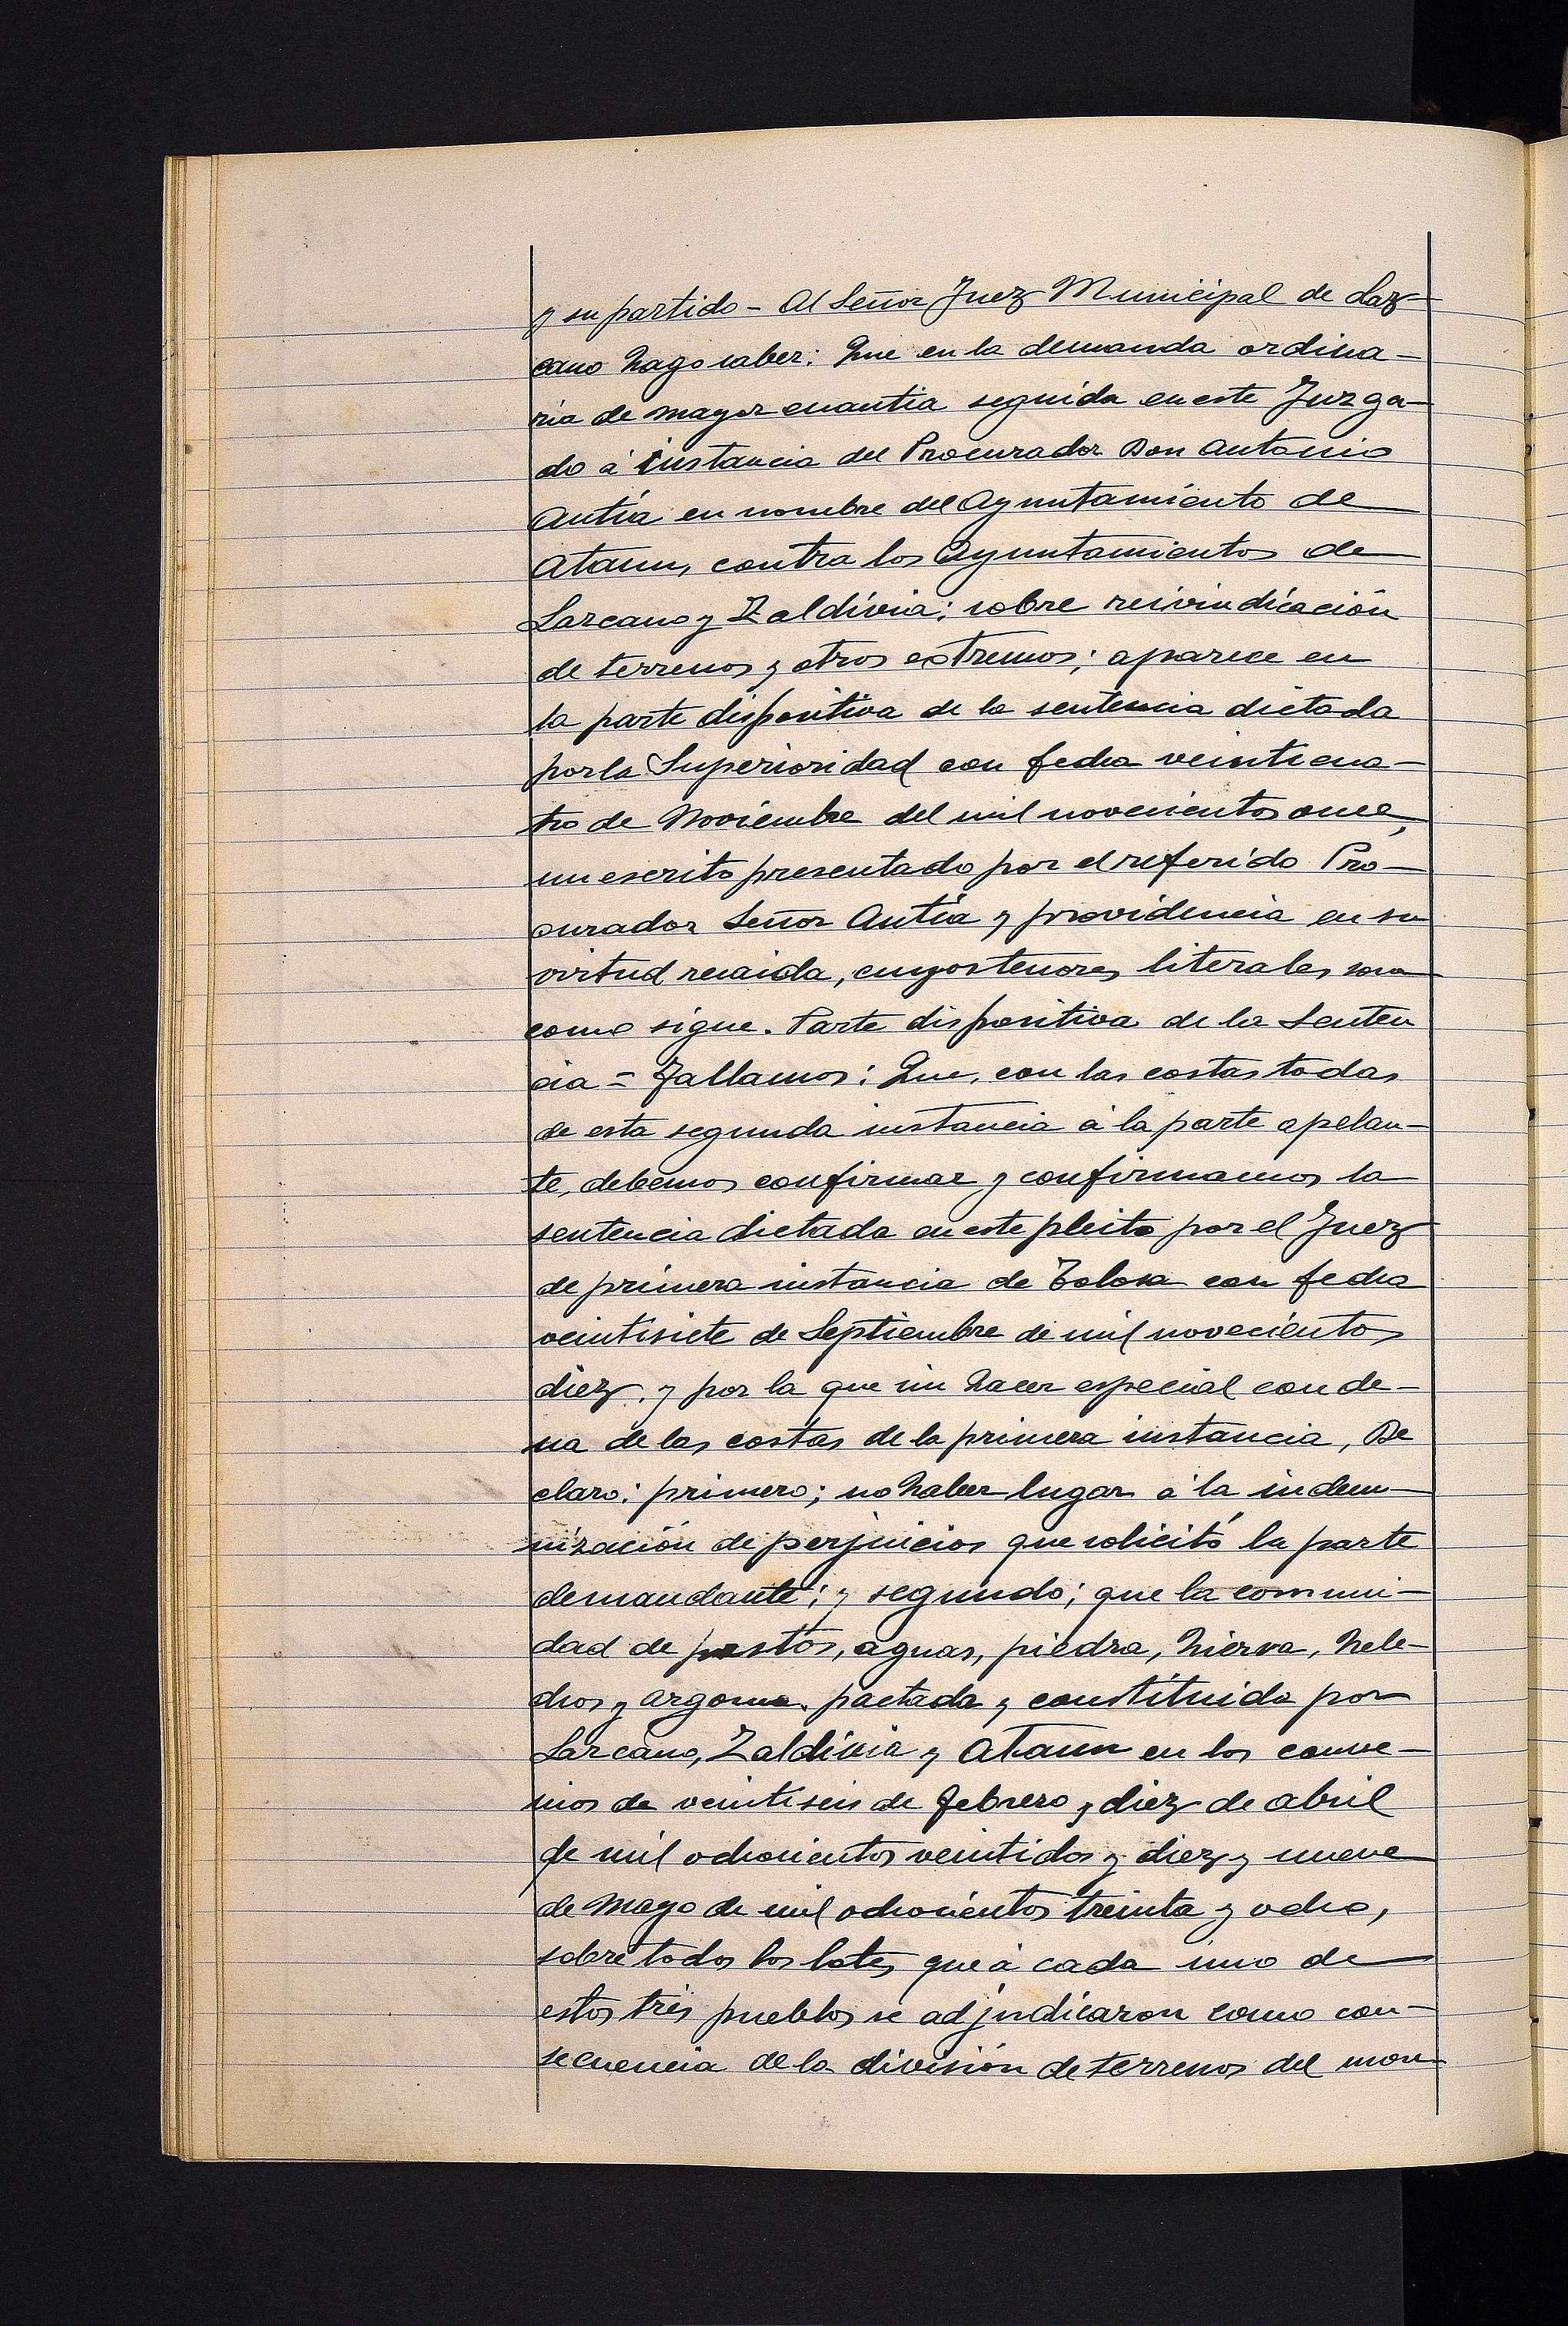 y su partido - Al Señor Juez Municipal de Laz-
cano hago saber: Que en la demanda ordina-
ria de mayor cuantia seguida en este Juzga-
do á instancia del Procurador Don Antonio
Antía en nombre del Ayuntamiento de
Ataun, contra los Ayuntamientos de
Lazcano y Zaldivia; sobre reivindicación
de terrenos y otros extremos; aparece en
la parte dispositiva de la sentencia dictada
por la Superioridad con fecha veinticua-
tro de Noviembre del mil novecientos once,
un escrito presentado por el referido Pro-
curador Señor Antía y providencia en su
virtud recaida, cuyos tenores literales son
como sigue. Parte dispositiva de la Senten
cia = Fallamos: Que, con las costas todas
de esta segunda instancia á la parte apelan-
te, debemos confirmar y confirmamos la
sentencia dictada en este pleito por el Juez
de primera instancia de Tolosa con fecha
veintisiete de Septiembre de mil novecientos
diez, y por la que sin hacer especial conde-
na de las costas de la primera instancia, De
claro: primero; no haber lugar á la indem-
nización de perjuicios que solicitó la parte
demandante; y segundo; que la comuni-
dad de pastos, aguas, piedra, hierva, hele-
chos y argoma, pactada y constituida por
Lazcano, Zaldivia y Ataun en los conve-
nios de veintiseis de Febrero y diez de abril
de mil ochocientos veintidos y diez y nueve
de Mayo de mil ochocientos treinta y ocho,
sobre todos los lotes que á cada uno de
estos tres pueblos se adjudicaron como con-
secuencia de la división de terrenos del mon-